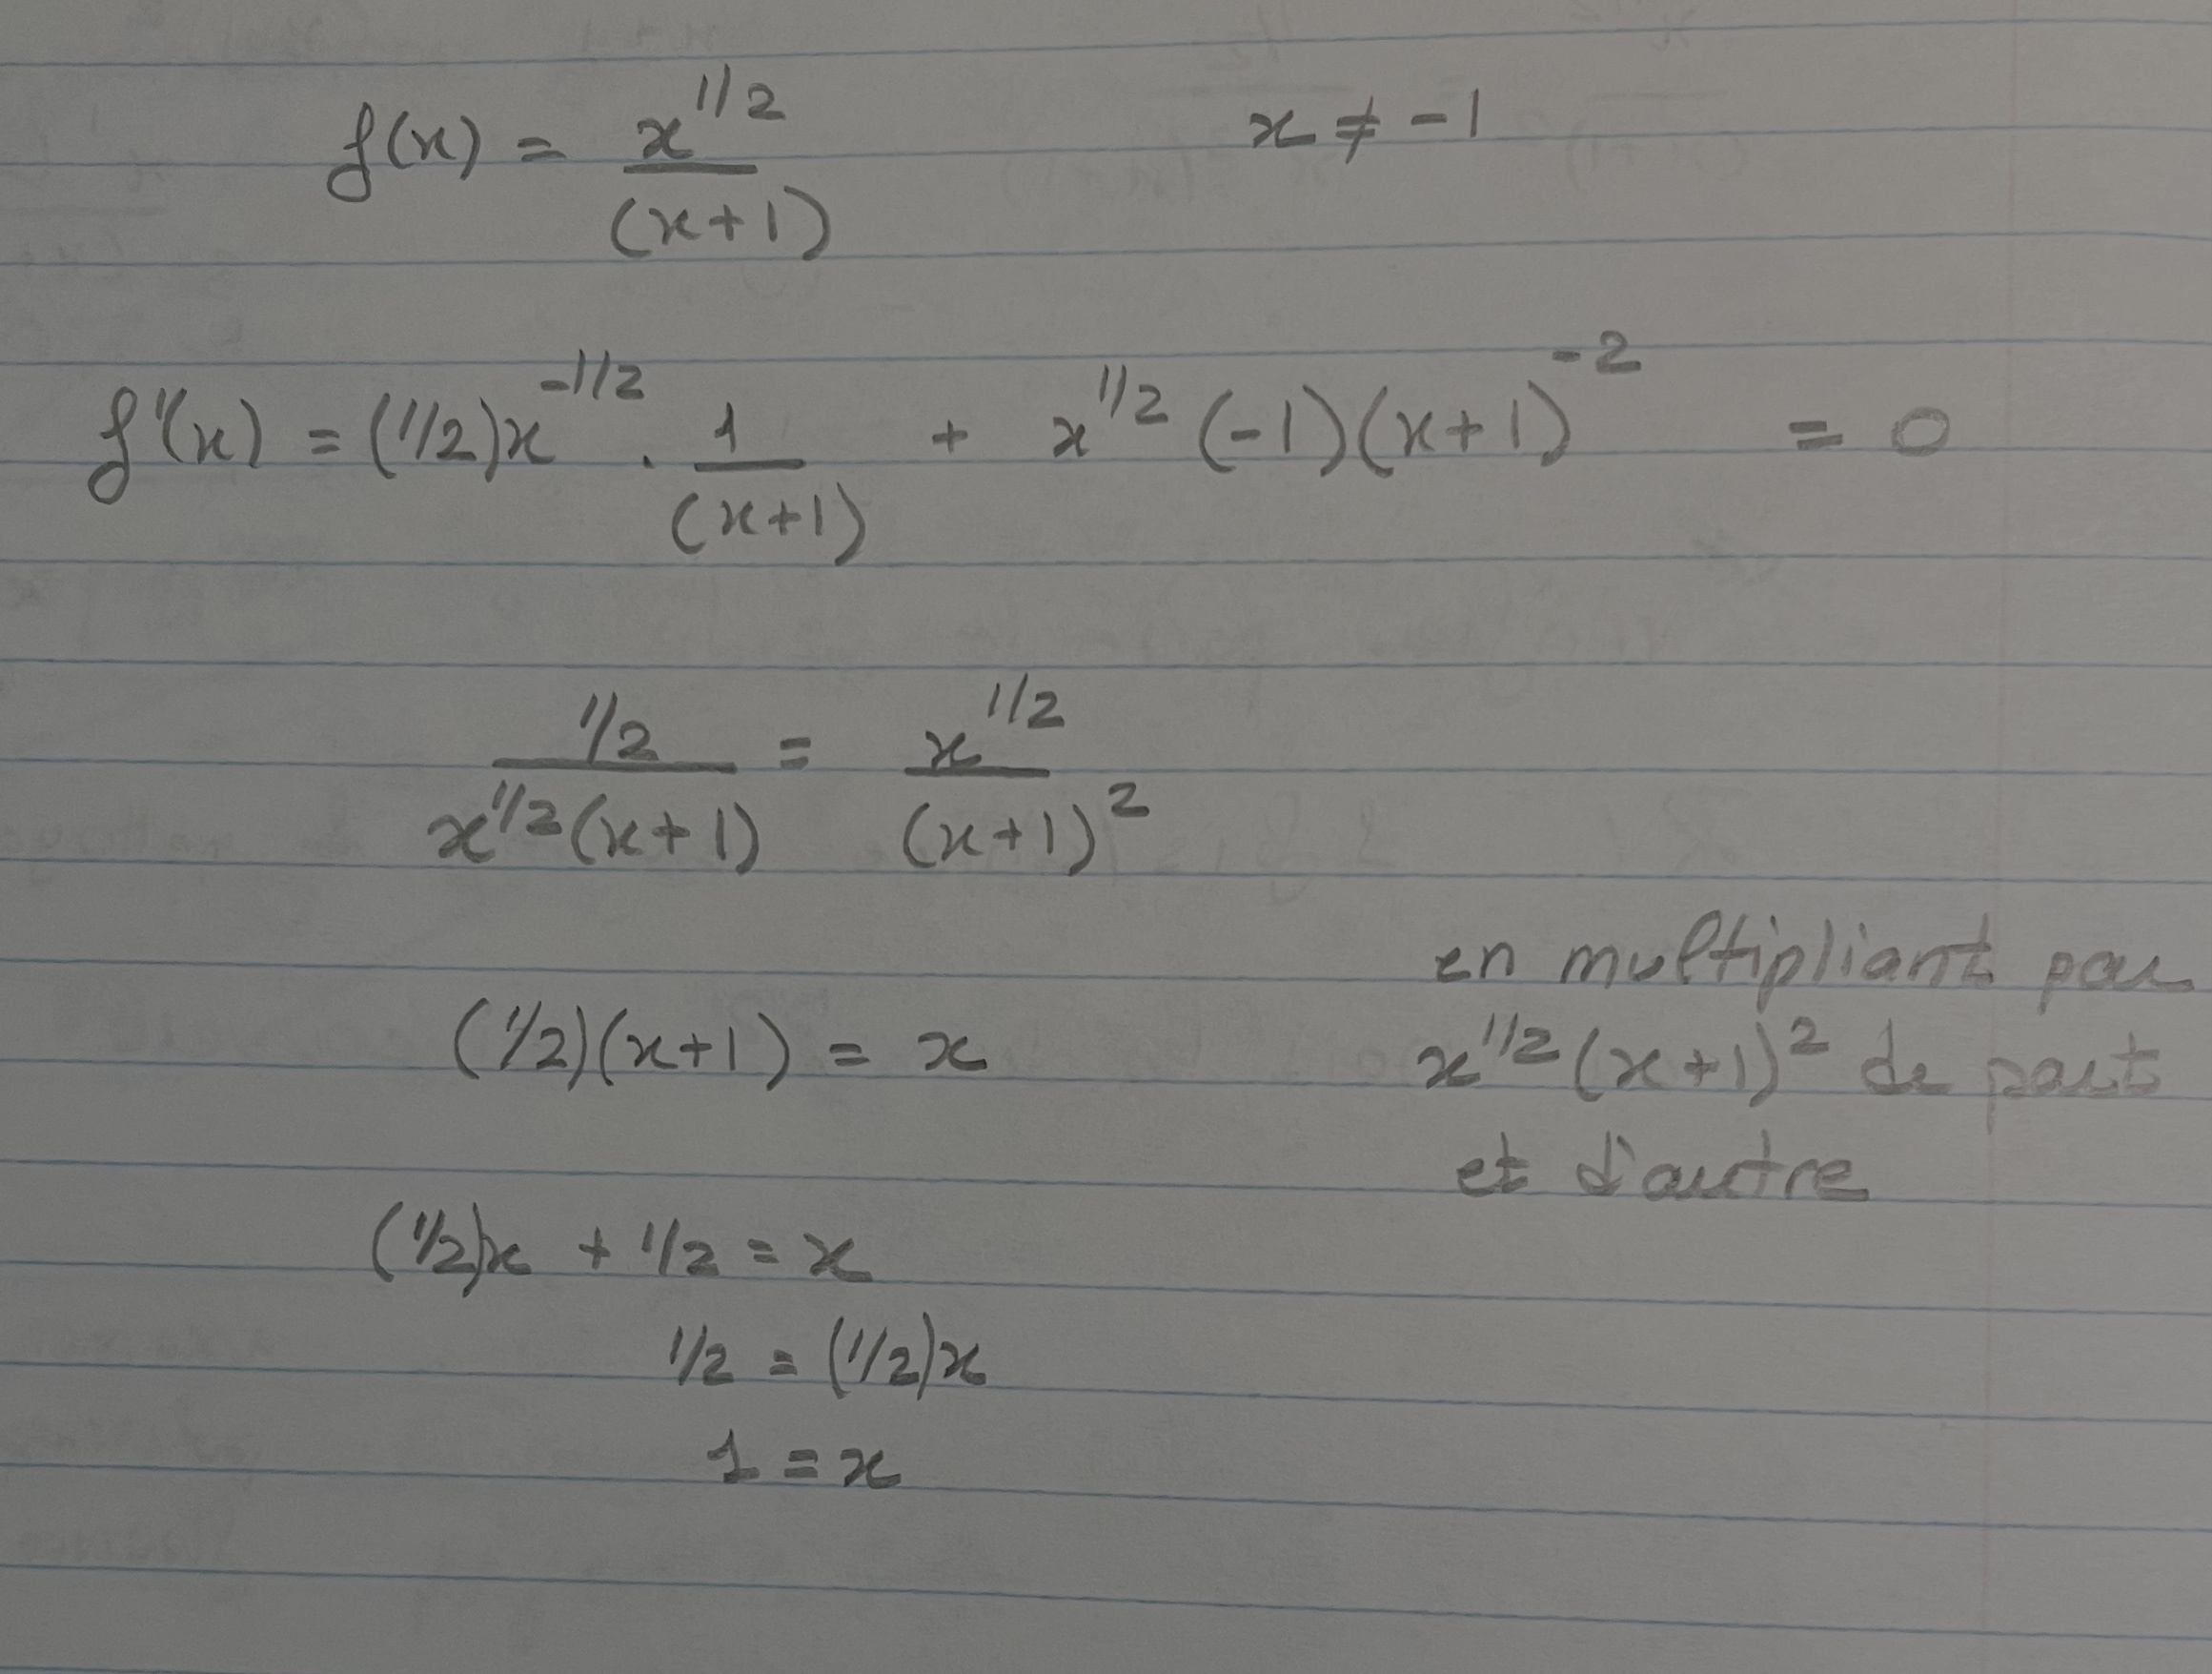 f(x) = x^1/2 / (x+1)    x ≠ -1
f'(x) = (1/2)x^-1/2 · 1/(x+1) + x^1/2 (-1)(x+1)^-2 = 0
1/2 / x^1/2(x+1) = x^1/2 / (x+1)^2
(1/2)(x+1) = x
en multipliant par
x^1/2 (x+1)^2 de part
et d'autre
(1/2)x + 1/2 = x
1/2 = (1/2)x
1 = x